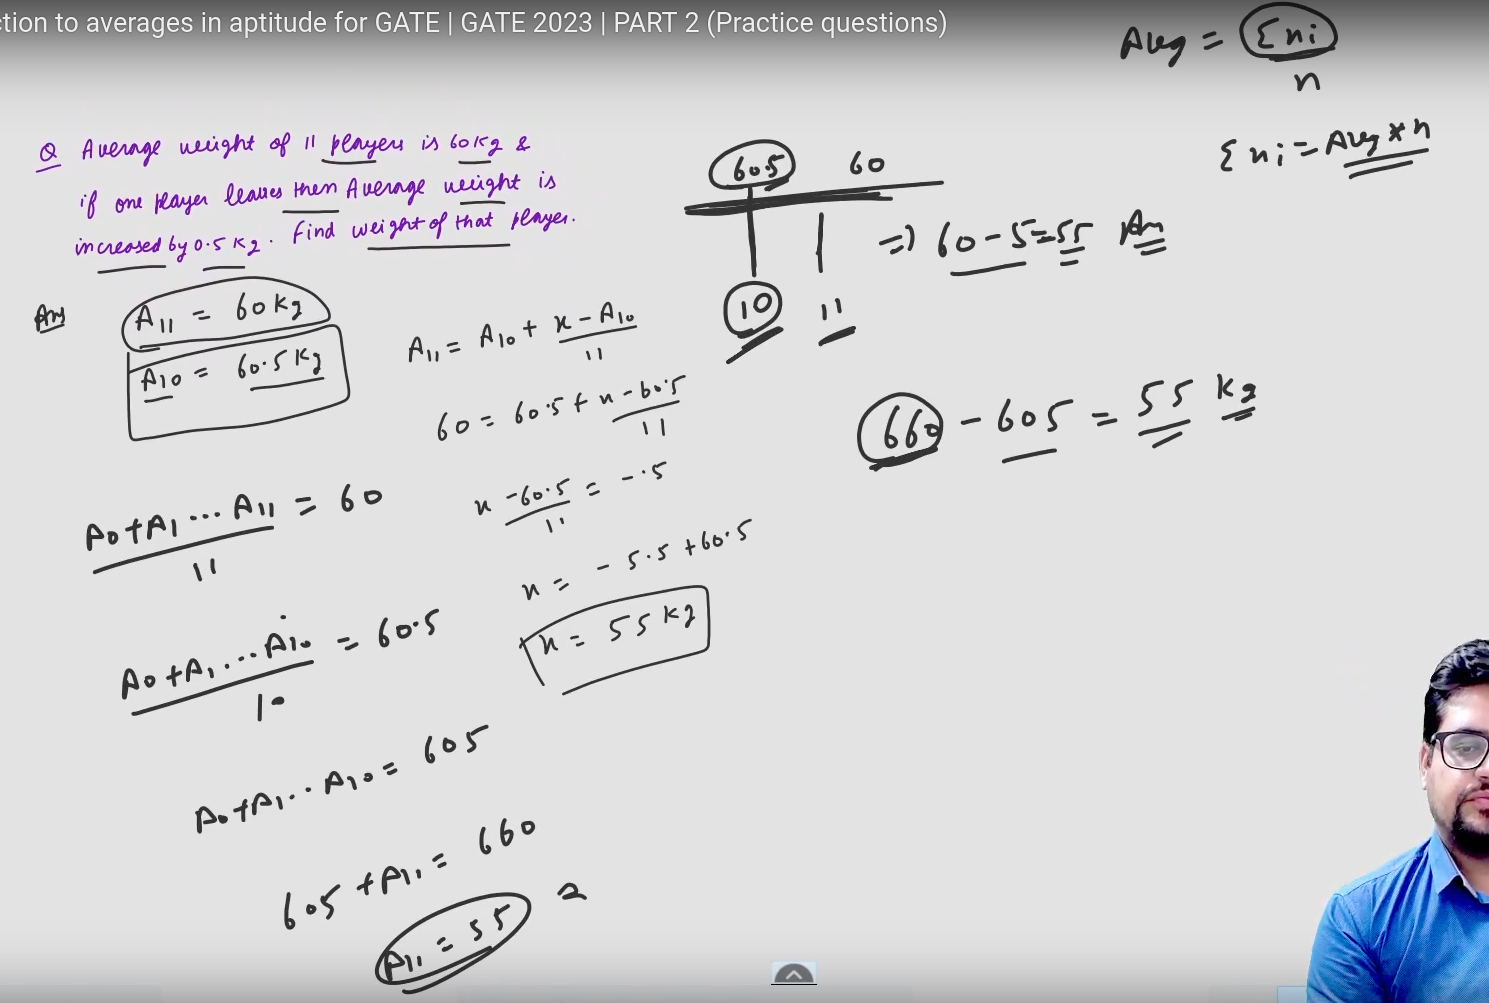 ction to averages in aptitude for GATE | GATE 2023 | PART 2 (Practice questions)
Avg = Σxi / n
Σxi = Avg * n
Q Average weight of 11 players is 60 Kg &
if one player leaves then Average weight is
increased by 0.5 Kg. Find weight of that player.
Ans
A11 = 60 Kg
A10 = 60.5 Kg
A0+A1 ... A11 / 11 = 60
A0+A1 ... A10 / 10 = 60.5
A0+A1 .. A10 = 605
605 + A11 = 660
A11 = 55
A11 = A10 + x - A10 / 11
60 = 60.5 + x - 60.5 / 11
x - 60.5 / 11 = - .5
x = - 5.5 + 60.5
x = 55 Kg
60.5 60
10 11
=> 60 - 5 = 55 Ans
660 - 605 = 55 Kg